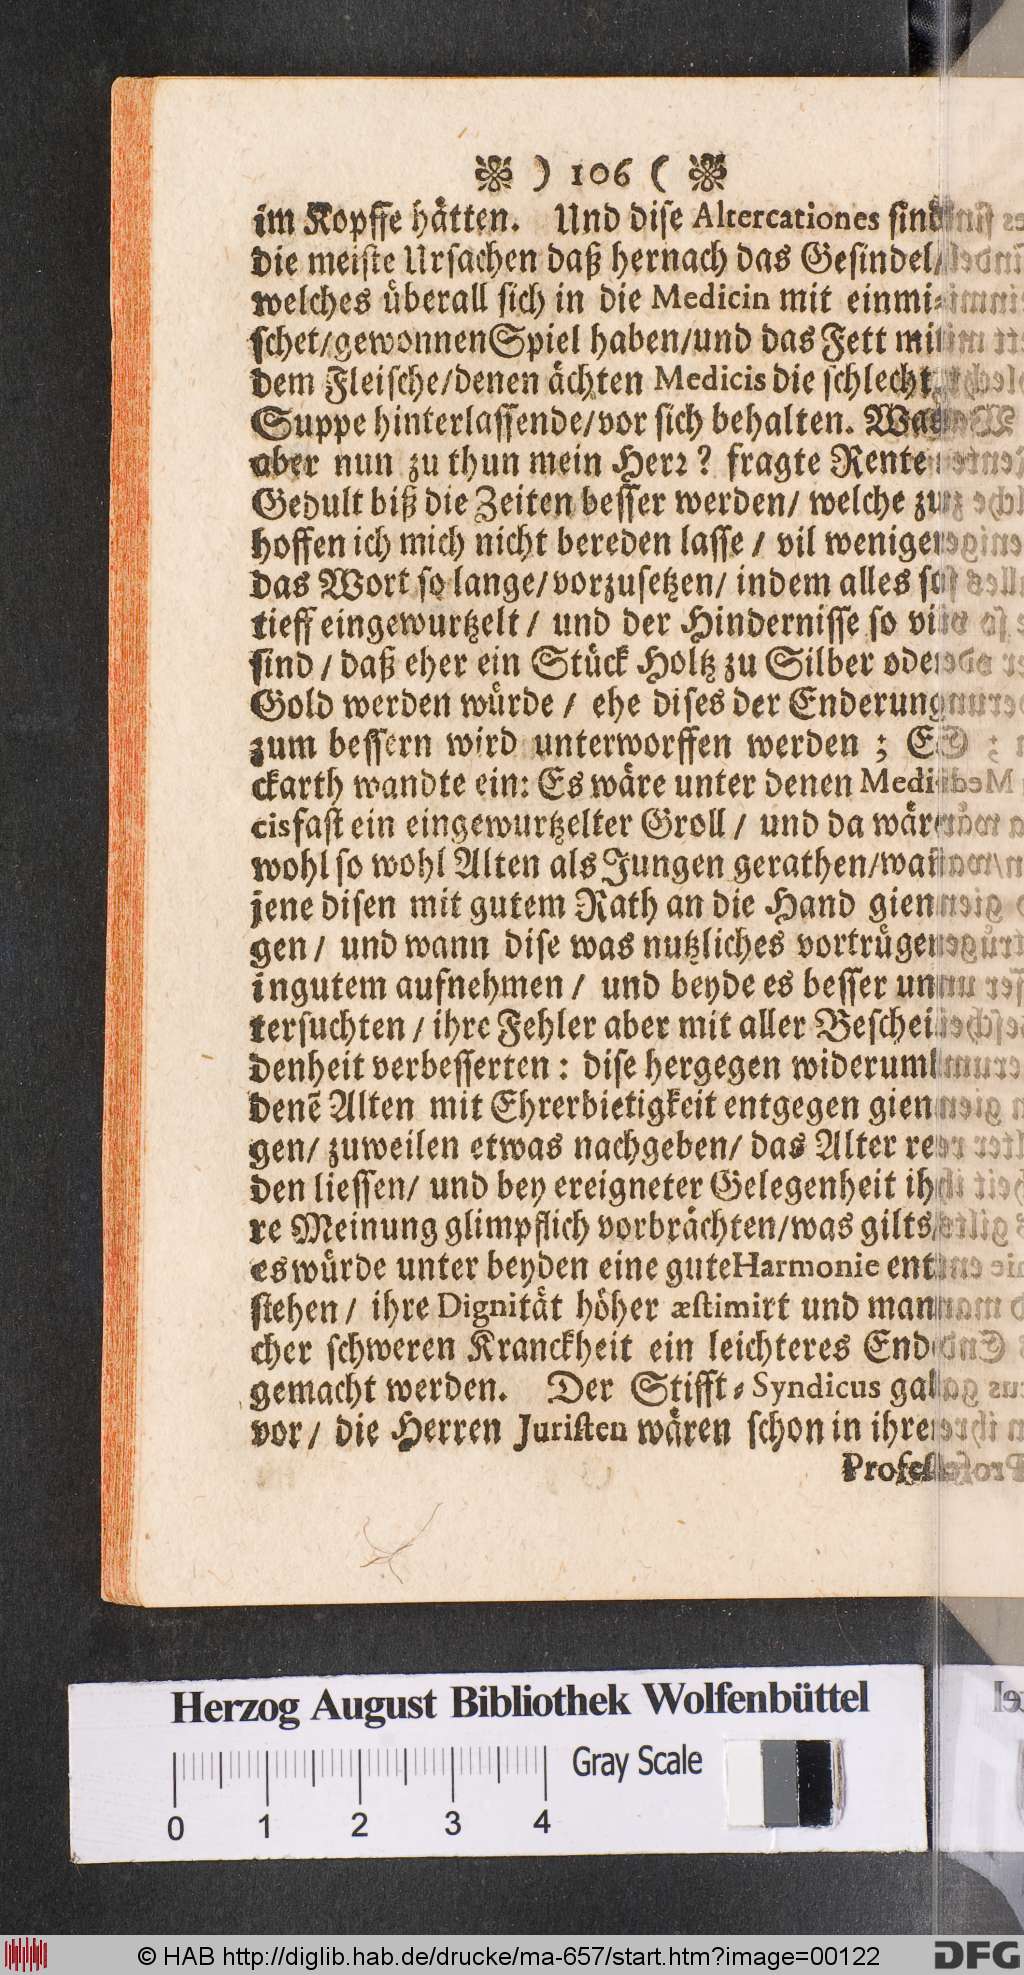 ❧ ) 106 ( ❧
im Kopffe hätten. Und dise Altercationes sind
die meiste Ursachen daß hernach das Gesindel/
welches überall sich in die Medicin mit einmi-
schet/gewonnen Spiel haben/und das Fett mit
dem Fleische/denen ächten Medicis die schlechte
Suppe hinterlassende/vor sich behalten. Was
aber nun zu thun mein Herr? fragte Rente
Gedult biß die Zeiten besser werden/ welche zu
hoffen ich mich nicht bereden lasse / vil weniger
das Wort so lange/vorzusetzen/ indem alles so
tieff eingewurtzelt / und der Hindernisse so vil
sind / daß eher ein Stück Holtz zu Silber oder
Gold werden würde / ehe dises der Enderung
zum bessern wird unterworffen werden ; E-
ckarth wandte ein: Es wäre unter denen Medi-
cis fast ein eingewurtzelter Groll / und da wäre
wohl so wohl Alten als Jungen gerathen/wañ
jene disen mit gutem Rath an die Hand gien-
gen / und wann dise was nutzliches vortrügen
in gutem aufnehmen / und beyde es besser un-
tersuchten / ihre Fehler aber mit aller Beschei-
denheit verbesserten : dise hergegen widerumb
denẽ Alten mit Ehrerbietigkeit entgegen gien-
gen/ zuweilen etwas nachgeben/ das Alter re-
den liessen/ und bey ereigneter Gelegenheit ih-
re Meinung glimpflich vorbrächten/was gilts/
es würde unter beyden eine gute Harmonie ent-
stehen / ihre Dignität höher æstimirt und man-
cher schweren Kranckheit ein leichteres End
gemacht werden. Der Stifft-Syndicus gab
vor / die Herren Juristen wären schon in ihrer
Profes-
Herzog August Bibliothek Wolfenbüttel
Gray Scale
0 1 2 3 4
© HAB http://diglib.hab.de/drucke/ma-657/start.htm?image=00122
DFG